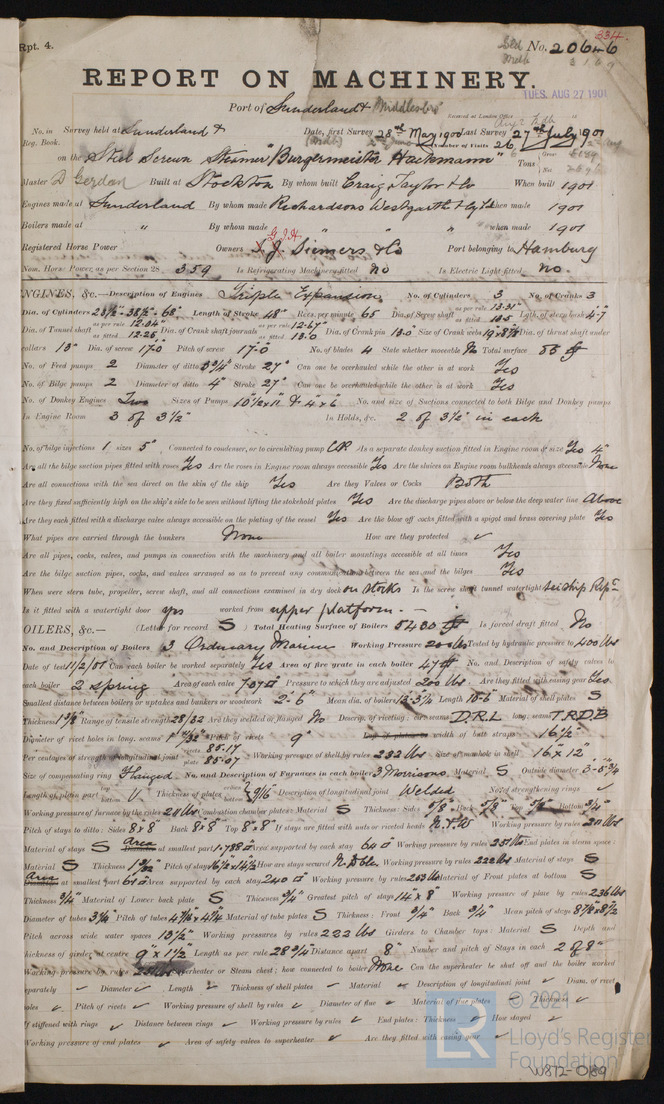 Rpt. 4.
No. 20646
334.
REPORT ON MACHINERY.
TUES. AUG 27 1901
Port of Sunderland & Middlesbro'
No. in Reg. Book. Survey held at Sunderland & Date, first Survey 28th May 1900 Last Survey 27th July 1901
Number of Visits 26
on the Steel Screw Steamer "Burgermeister Hachmann" Tons
Master D Gerdon Built at Stockton By whom built Craig Taylor & Co When built 1901
Engines made at Sunderland By whom made Richardsons Westgarth & Co Ld when made 1901
Boilers made at " By whom made " " when made 1901
Registered Horse Power Owners G. J. H. Siemers & Co Port belonging to Hamburg
Nom. Horse Power, as per Section 28 359 Is Refrigerating Machinery fitted No Is Electric Light fitted No.
NGINES, &c.—Description of Engines Triple Expansion No. of Cylinders 3 No. of Cranks 3
Dia. of Cylinders 23½"-38½"-68" Length of Stroke 48" Revs. per minute 65 Dia. of Screw shaft as per rule 13.31" Lgth. of stern bush 4-7
Dia. of Tunnel shaft as per rule 12.04" as fitted Dia. of Crank shaft journals as per rule 12.67" as fitted 13.0 Dia. of Crank pin 13.0 Size of Crank webs Dia. of thrust shaft under
collars 13" Dia. of screw 17-0 Pitch of screw 17-0 No. of blades 4 State whether moveable No Total surface 85 ft
No. of Feed pumps 2 Diameter of ditto 3¾" Stroke 27" Can one be overhauled while the other is at work Yes
No. of Bilge pumps 2 Diameter of ditto 4" Stroke 27" Can one be overhauled while the other is at work Yes
No. of Donkey Engines Two Sizes of Pumps 10½x11 & 4"x6 No. and size of Suctions connected to both Bilge and Donkey pumps
In Engine Room 3 of 3½" In Holds, &c. 2 of 3½" in each
No. of bilge injections 1 sizes 5" Connected to condenser, or to circulating pump CP Is a separate donkey suction fitted in Engine room & size Yes 4"
Are all the bilge suction pipes fitted with roses Yes Are the roses in Engine room always accessible Yes Are the sluices on Engine room bulkheads always accessible None
Are all connections with the sea direct on the skin of the ship Yes Are they Valves or Cocks Both
Are they fixed sufficiently high on the ship's side to be seen without lifting the stokehold plates Yes Are the discharge pipes above or below the deep water line Above
Are they each fitted with a discharge valve always accessible on the plating of the vessel Yes Are the blow off cocks fitted with a spigot and brass covering plate Yes
What pipes are carried through the bunkers None How are they protected ✓
Are all pipes, cocks, valves, and pumps in connection with the machinery and all boiler mountings accessible at all times Yes
Are the bilge suction pipes, cocks, and valves arranged so as to prevent any communication between the sea and the bilges Yes
When were stern tube, propeller, screw shaft, and all connections examined in dry dock on stocks Is the screw shaft tunnel watertight see ship Rept
Is it fitted with a watertight door yes worked from upper platform.
OILERS, &c.— (Letter for record S) Total Heating Surface of Boilers 5400 ft Is forced draft fitted No
No. and Description of Boilers 3 Ordinary Marine Working Pressure 200 lbs Tested by hydraulic pressure to 400 lbs
Date of test 1/2/01 Can each boiler be worked separately Yes Area of fire grate in each boiler 47 ft No. and Description of safety valves to
each boiler 2 spring Area of each valve 7.07 Pressure to which they are adjusted 200 lbs Are they fitted with easing gear Yes
Smallest distance between boilers or uptakes and bunkers or woodwork 2'-6" Mean dia. of boilers Length 10-6 Material of shell plates S
Thickness Range of tensile strength 28/32 Are they welded or flanged No Descrip. of riveting: cir. seams D.R.L long. seams T.R.D.B
Diameter of rivet holes in long. seams Pitch of rivets 9" width of butt straps 16½"
Per centages of strength of longitudinal joint rivets 85.17 plate 85.07 Working pressure of shell by rules 232 lbs Size of manhole in shell 16"x12"
Size of compensating ring Flanged No. and Description of Furnaces in each boiler 3 Morrisons Material S Outside diameter
Length of plain part top bottom Thickness of plates 9/16 Description of longitudinal joint Welded No. of strengthening rings ✓
Working pressure of furnace by the rules 211 lbs Combustion chamber plates: Material S Thickness: Sides 5/8" Back 5/8" Top 5/8" Bottom ¾"
Pitch of stays to ditto: Sides 8x8 Back 8x8 Top 8x8 If stays are fitted with nuts or riveted heads Working pressure by rules 211 lbs
Material of stays S Area at smallest part 1.788 Area supported by each stay 64 Working pressure by rules End plates in steam space:
Material S Thickness Pitch of stays 16½x14½ How are stays secured Working pressure by rules 222 lbs Material of stays S
Area at smallest part Area supported by each stay 240 Working pressure by rules Material of Front plates at bottom S
Thickness ¾" Material of Lower back plate S Thickness ¾" Greatest pitch of stays 14"x8" Working pressure of plate by rules 236 lbs
Diameter of tubes 3¼" Pitch of tubes Material of tube plates S Thickness: Front ¾" Back ¾" Mean pitch of stays
Pitch across wide water spaces 13½" Working pressures by rules 222 lbs Girders to Chamber tops: Material S Depth and
thickness of girder at centre 9"x1½" Length as per rule 28¾ Distance apart 8" Number and pitch of Stays in each 2 of 8"
Working pressure by rules Superheater or Steam chest; how connected to boiler None Can the superheater be shut off and the boiler worked
separately ✓ Diameter ✓ Length ✓ Thickness of shell plates ✓ Material ✓ Description of longitudinal joint ✓ Diam. of rivet
holes ✓ Pitch of rivets ✓ Working pressure of shell by rules ✓ Diameter of flue ✓ Material of flue plates ✓ Thickness ✓
If stiffened with rings ✓ Distance between rings ✓ Working pressure by rules ✓ End plates: Thickness ✓ How stayed ✓
Working pressure of end plates ✓ Area of safety valves to superheater ✓ Are they fitted with easing gear ✓
© 2021
LR
Lloyd's Register
Foundation
W872-0189